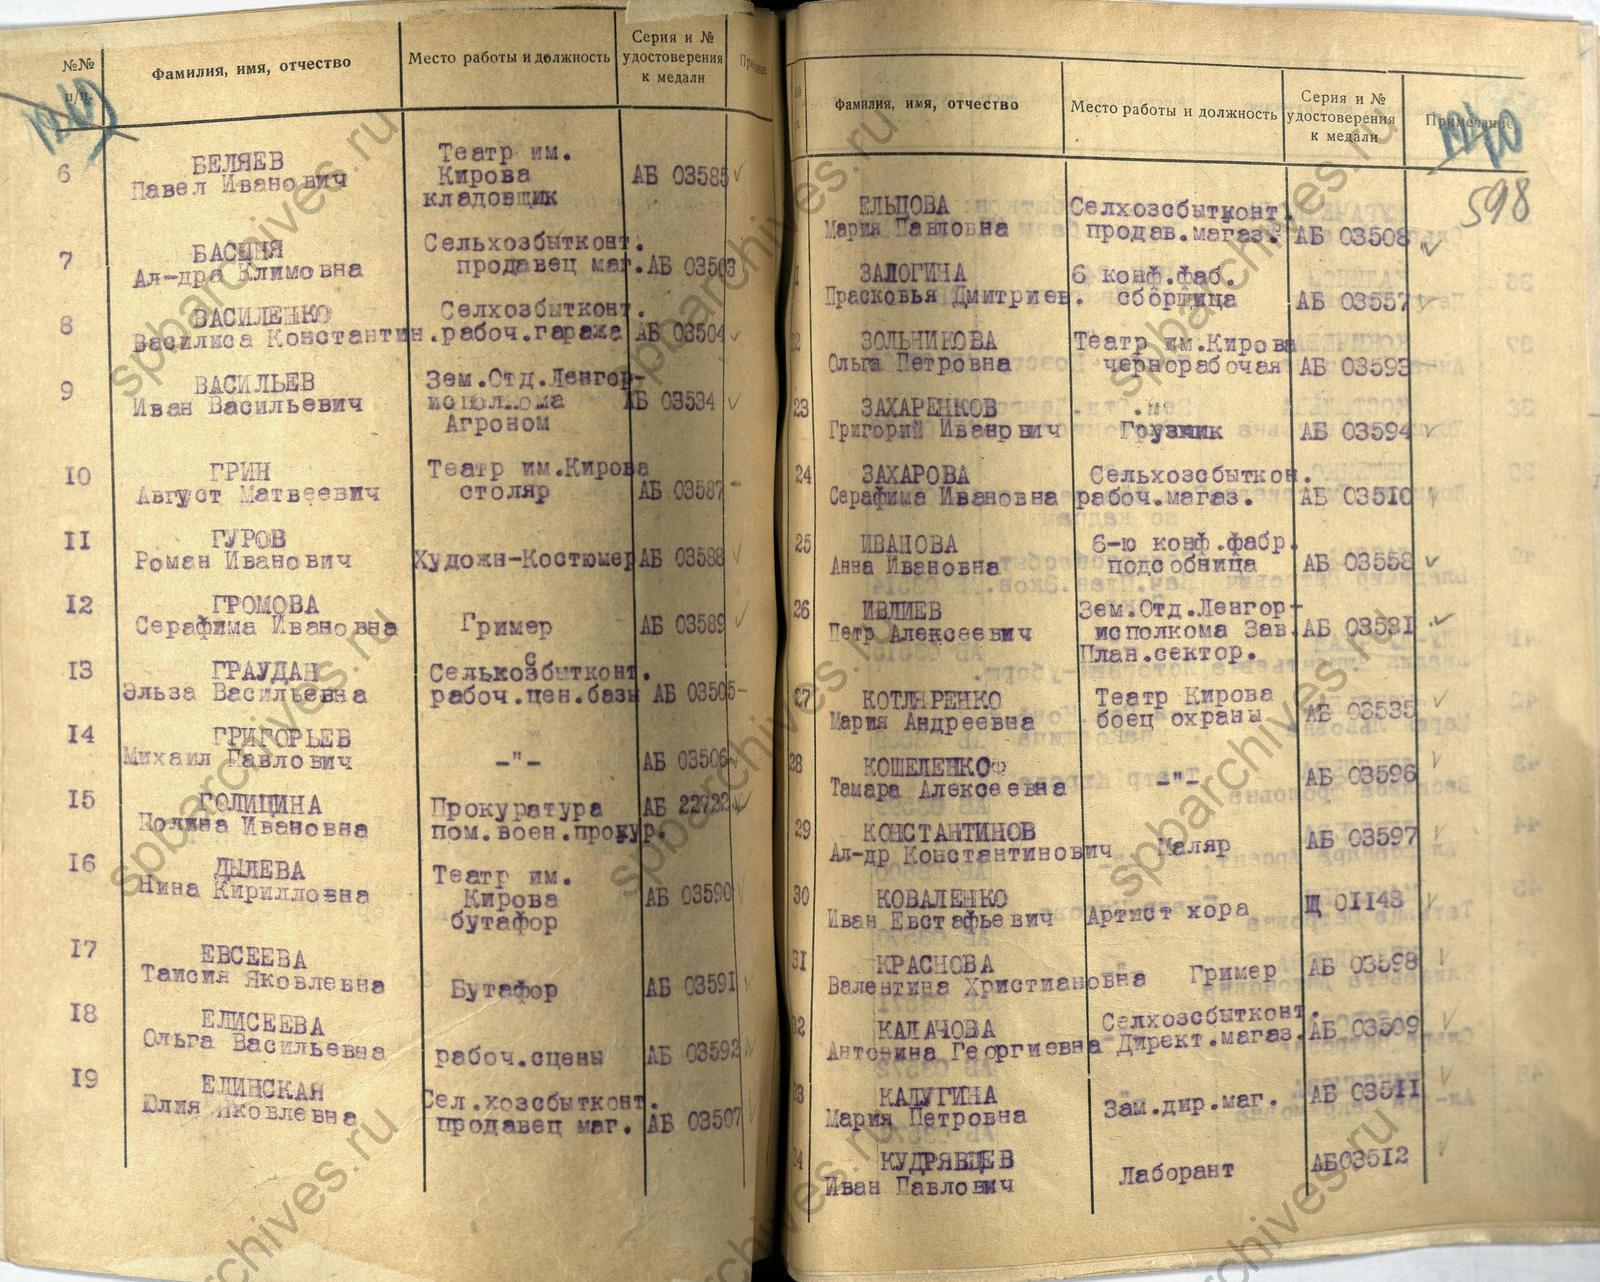 №№ п/п.
Фамилия, имя, отчество
Место работы и должность
Серия и № удостоверения к медали
6 БЕЛЯЕВ Театр им.
Павел Иванович Кирова АБ 03585
кладовщик
7 БАСЫНЯ Сельхозбытконт.
Ал-дра Климовна продавец маг. АБ 03503
8 ВАСИЛЕНКО Селхозбытконт.
Василиса Константин. рабоч.гаража АБ 03504
9 ВАСИЛЬЕВ Зем.Отд.Ленгор-
Иван Васильевич исполкома АБ 03534
Агроном
10 ГРИН Театр им.Кирова
Август Матвеевич столяр АБ 03587
11 ГУРОВ
Роман Иванович Художн-Костюмер АБ 03588
12 ГРОМОВА
Серафима Ивановна Гример АБ 03589
13 ГРАУДАН Селькозбытконт.
Эльза Васильевна рабоч.цен.базы АБ 03505
14 ГРИГОРЬЕВ
Михаил Павлович -"- АБ 03506
15 ГОЛИЦИНА Прокуратура АБ 22722
Полина Ивановна пом.воен.прокур.
16 ДЫЛЕВА Театр им.
Нина Кирилловна Кирова АБ 03590
бутафор
17 ЕВСЕЕВА
Таисия Яковлевна Бутафор АБ 03591
18 ЕЛИСЕЕВА
Ольга Васильевна рабоч.сцены АБ 03592
19 ЕЛИНСКАЯ Сел.хозсбытконт.
Юлия Яковлевна продавец маг. АБ 03507
Фамилия, имя, отчество
Место работы и должность
Серия и № удостоверения к медали
Примечание
598
ЕЛЬЦОВА Селхозсбытконт.
Мария Павловна продав.магаз. АБ 03508
ЗАЛОГИНА 6 конф.фаб.
Прасковья Дмитриев. сборщица АБ 03557
ЗОЛЬНИКОВА Театр им.Кирова
Ольга Петровна чернорабочая АБ 03593
23 ЗАХАРЕНКОВ
Григорий Иванович Грузчик АБ 03594
24 ЗАХАРОВА Сельхозсбыткон.
Серафима Ивановна рабоч.магаз. АБ 03510
25 ИВАНОВА 6-ю конф.фабр.
Анна Ивановна подсобница АБ 03558
26 ИВЛИЕВ Зем.Отд.Ленгор-
Петр Алексеевич исполкома Зав. АБ 03531
План.сектор.
27 КОТЛЯРЕНКО Театр Кирова
Мария Андреевна боец охраны АБ 03535
28 КОШЕЛЕНКО
Тамара Алексеевна -"- АБ 03596
29 КОНСТАНТИНОВ
Ал-др Константинович Маляр АБ 03597
30 КОВАЛЕНКО
Иван Евстафьевич Артист хора Щ 01143
31 КРАСНОВА
Валентина Христиановна Гример АБ 03598
32 КАЛАЧОВА Селхозсбытконт.
Антонина Георгиевна Директ.магаз. АБ 03509
33 КАЛУГИНА
Мария Петровна Зам.дир.маг. АБ 03511
34 КУДРЯВЦЕВ
Иван Павлович Лаборант АБ03512
spbarchives.ru